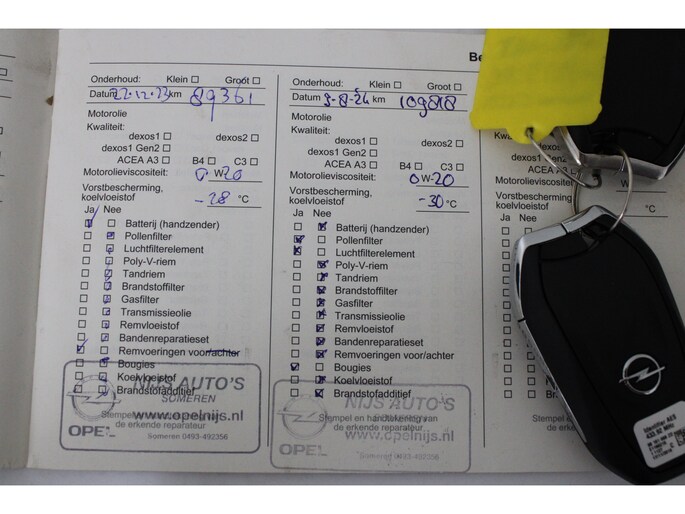 Be
Onderhoud: Klein Groot
Datum 22-12-23 km 89361
Motorolie
Kwaliteit:
dexos1 dexos2
dexos1 Gen2
ACEA A3 B4 C3
Motorolieviscositeit: 0 W-20
Vorstbescherming,
koelvloeistof -28 °C
Ja Nee
Batterij (handzender)
Pollenfilter
Luchtfilterelement
Poly-V-riem
Tandriem
Brandstoffilter
Gasfilter
Transmissieolie
Remvloeistof
Bandenreparatieset
Remvoeringen voor/achter
Bougies
Koelvloeistof
Brandstofadditief
NIJS AUTO'S
SOMEREN
www.opelnijs.nl
de erkende reparateur
OPEL Someren 0493-492356
Onderhoud: Klein Groot
Datum 9-8-24 km 109818
Motorolie
Kwaliteit:
dexos1 dexos2
dexos1 Gen2
ACEA A3 B4 C3
Motorolieviscositeit: 0 W-20
Vorstbescherming,
koelvloeistof -30 °C
Ja Nee
Batterij (handzender)
Pollenfilter
Luchtfilterelement
Poly-V-riem
Tandriem
Brandstoffilter
Gasfilter
Transmissieolie
Remvloeistof
Bandenreparatieset
Remvoeringen voor/achter
Bougies
Koelvloeistof
Brandstofadditief
NIJS AUTO'S
Stempel en handtekening van
www.opelnijs.nl
de erkende reparateur
OPEL Someren 0493-492356
W
°C
433,92 MHz